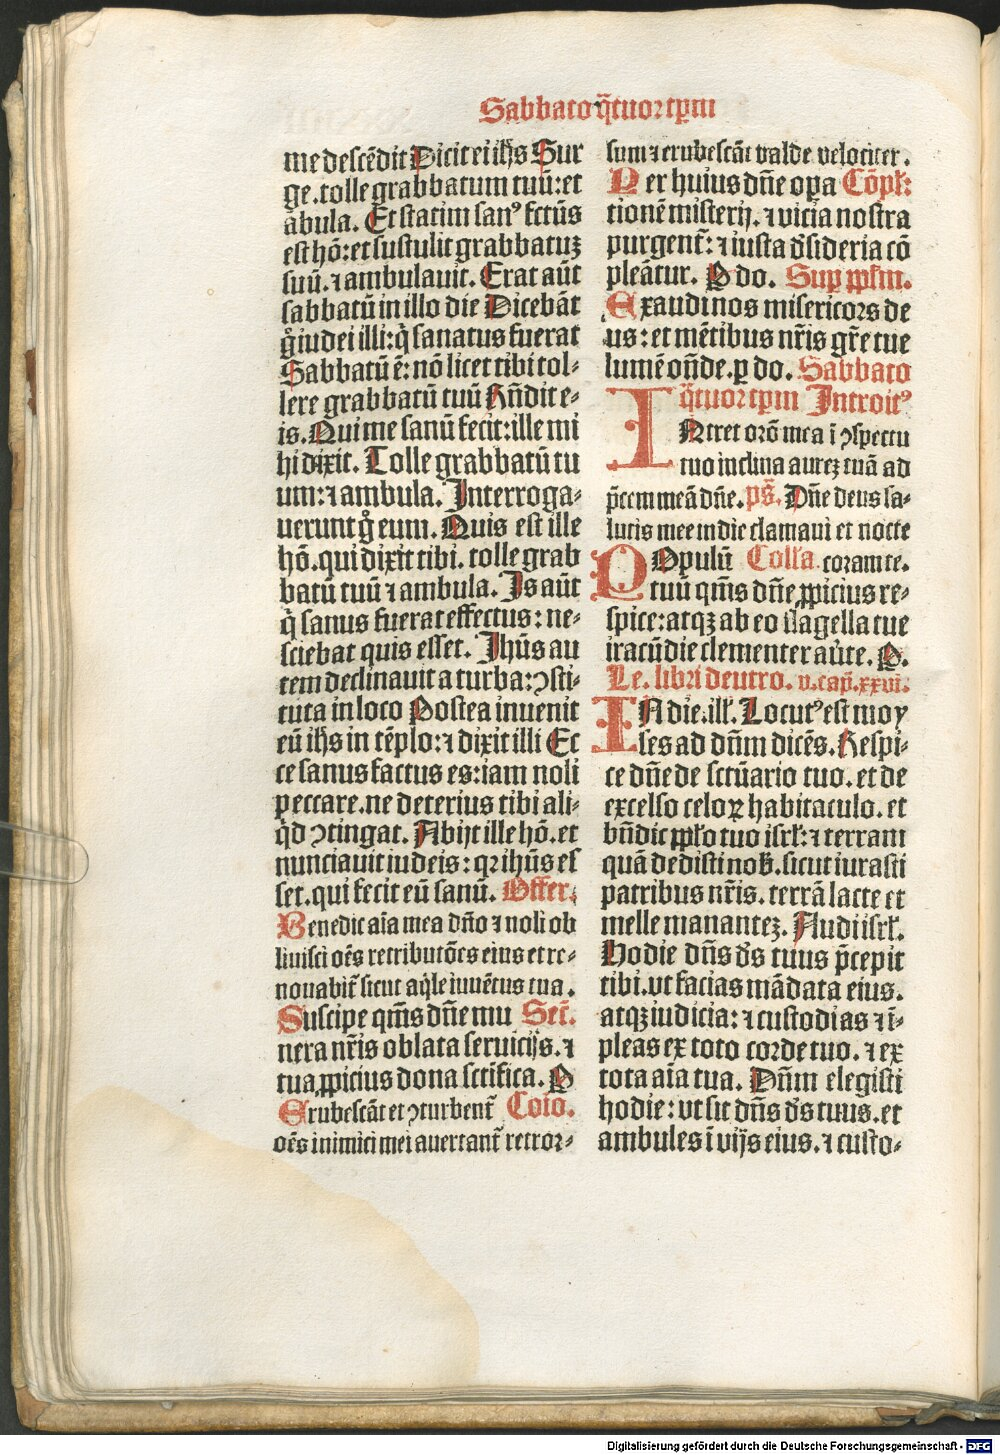 Sabbato q̄tuor tꝑm
me descēdit Dicit ei ih̄s Sur
ge. tolle grabbatum tuū: et
abula. Et statim sanꝰ fctūs
est hō: et sustulit grabbatuꝫ
suū. ⁊ ambulauit. Erat aūt
sabbatū in illo die Dicebāt
gͦ iudei illi: q̄ sanatus fuerat
Sabbatū ē: nō licet tibi tol-
lere grabbatū tuū Rn̄dit e-
is. Qui me sanū fecit: ille mi
hi dixit. Tolle grabbatū tu
um: ⁊ ambula. Interroga-
uerunt gͦ eum. Quis est ille
hō. qui dixit tibi. tolle grab
batū tuū ⁊ ambula. Is aūt
q̄ sanus fuerat effectus: ne-
sciebat quis esset. Jhūs au
tem declinauit a turba: ꝯsti-
tuta in loco Postea inuenit
eū ihs in tēplo: ⁊ dixit illi Ec
ce sanus factus es: iam noli
peccare. ne deterius tibi ali-
q̄d ꝯtingat. Abijt ille hō. et
nunciauit iudeis: qr ihūs es
set. qui fecit eū sanū. Offer.
Benedic aīa mea dn̄o ⁊ noli ob
liuisci oēs retributōes eius et re-
nouabit̄ sicut aq̄le iuuētus tua.
Suscipe qm̄s dn̄e mu Secr̄.
nera nr̄is oblata seruicijs. ⁊
tua ꝓpicius dona sctīfica. P
Erubescāt et ꝯturbent̄ Coīo.
oēs inimici mei auertant̄ retror-
sum ⁊ erubescāt valde velociter.
Per huius dn̄e opa Cōpł:
tionē misterij. ⁊ vicia nostra
purgent̄: ⁊ iusta d̄sideria cō
pleātur. P do. Sup ppłm.
Exaudi nos misericors de
us: et mētibus nr̄is gr̄e tue
lumē on̄de. p do. Sabbato
q̄tuor tꝑm Introitꝰ
INtret orō mea ī ꝯspectu
tuo inclina aureꝫ tuā ad
p̄cem meā dn̄e. ps̄. Dn̄e deus sa-
lutis mee in die clamaui et nocte
POpulū Coll̄a coram te.
tuū qm̄s dn̄e ꝓpicius re-
spice: atqꝫ ab eo flagella tue
iracūdie clementer aūte. P.
Le. libri deutro. v. cap̄. xxvi.
IN die. ill̄. Locutꝰ est moy
ses ad dn̄m dicēs. Respi-
ce dn̄e de sctūario tuo. et de
excelso celoꝝ habitaculo. et
bn̄dic ppło tuo isrł: ⁊ terram
quā dedisti nob̄. sicut iurasti
patribus nr̄is. terrā lacte et
melle mananteꝫ. Audi isrł.
Hodie dn̄s d̄s tuus p̄cepit
tibi. vt facias mādata eius.
atqꝫ iudicia: ⁊ custodias ⁊ ī-
pleas ex toto corde tuo. ⁊ ex
tota aīa tua. Dn̄m elegisti
hodie: vt sit dn̄s d̄s tuus. et
ambules ī vijs eius. ⁊ custo-
Digitalisierung gefördert durch die Deutsche Forschungsgemeinschaft - DFG